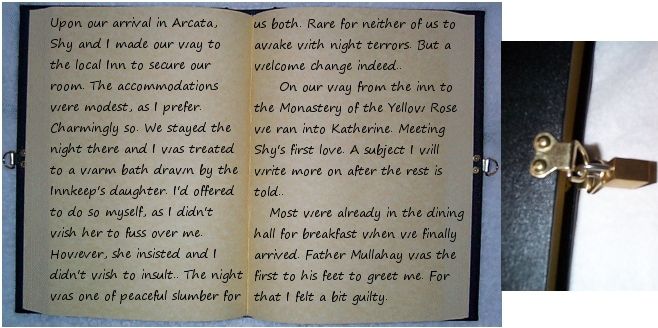 Upon our arrival in Arcata,
Shy and I made our way to
the local Inn to secure our
room. The accommodations
were modest, as I prefer.
Charmingly so. We stayed the
night there and I was treated
to a warm bath drawn by the
Innkeep's daughter. I'd offered
to do so myself, as I didn't
wish her to fuss over me.
However, she insisted and I
didn't wish to insult.. The night
was one of peaceful slumber for
us both. Rare for neither of us to
awake with night terrors. But a
welcome change indeed..
On our way from the inn to
the Monastery of the Yellow Rose
we ran into Katherine. Meeting
Shy's first love. A subject I will
write more on after the rest is
told..
Most were already in the dining
hall for breakfast when we finally
arrived. Father Mullahay was the
first to his feet to greet me. For
that I felt a bit guilty.